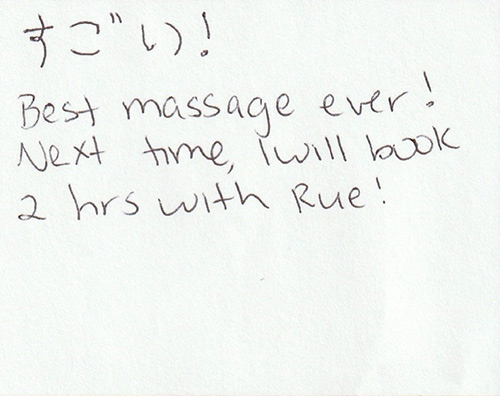 すごい!
Best massage ever!
Next time, I will book
2 hrs with Rue!